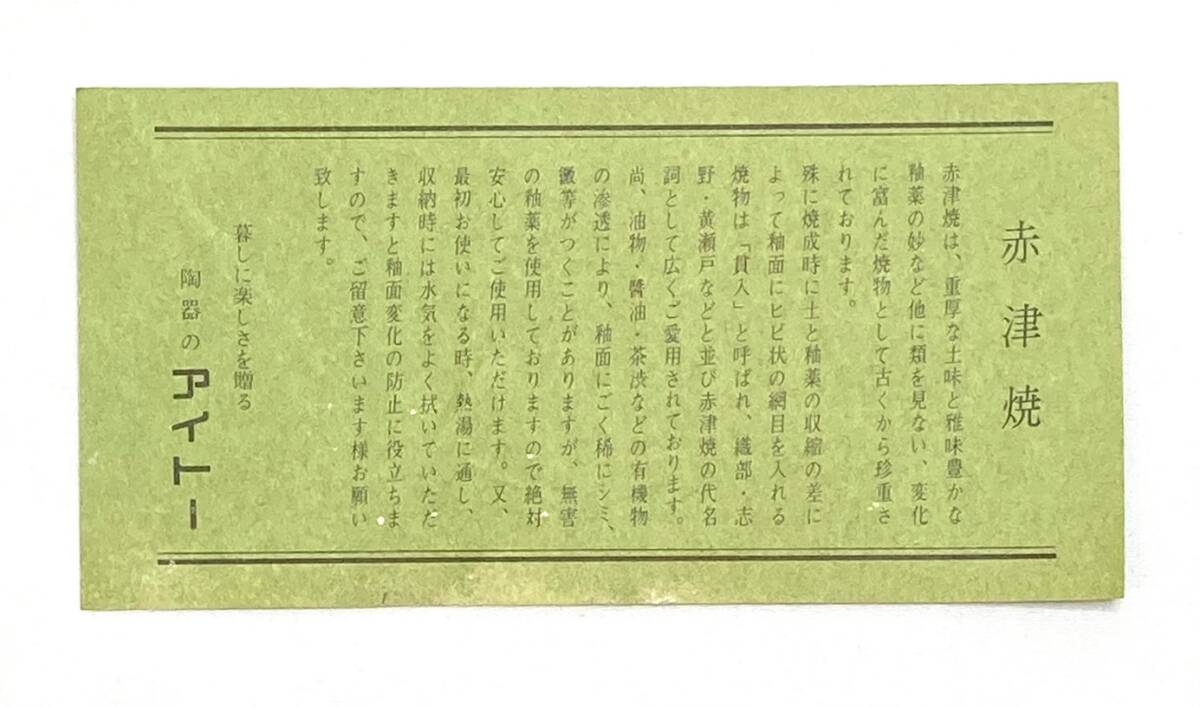 赤津焼
赤津焼は、重厚な土味と雅味豊かな
釉薬の妙など他に類を見ない、変化
に富んだ焼物として古くから珍重さ
れております。
殊に焼成時に土と釉薬の収縮の差に
よって釉面にヒビ状の網目を入れる
焼物は「貫入」と呼ばれ、織部・志
野・黄瀬戸などと並び赤津焼の代名
詞として広くご愛用されております。
尚、油物・醬油・茶渋などの有機物
の滲透により、釉面にごく稀にシミ、
黴等がつくことがありますが、無害
の釉薬を使用しておりますので絶対
安心してご使用いただけます。又、
最初お使いになる時、熱湯に通し、
収納時には水気をよく拭いていただ
きますと釉面変化の防止に役立ちま
すので、ご留意下さいます様お願い
致します。
暮しに楽しさを贈る
陶器のアイトー